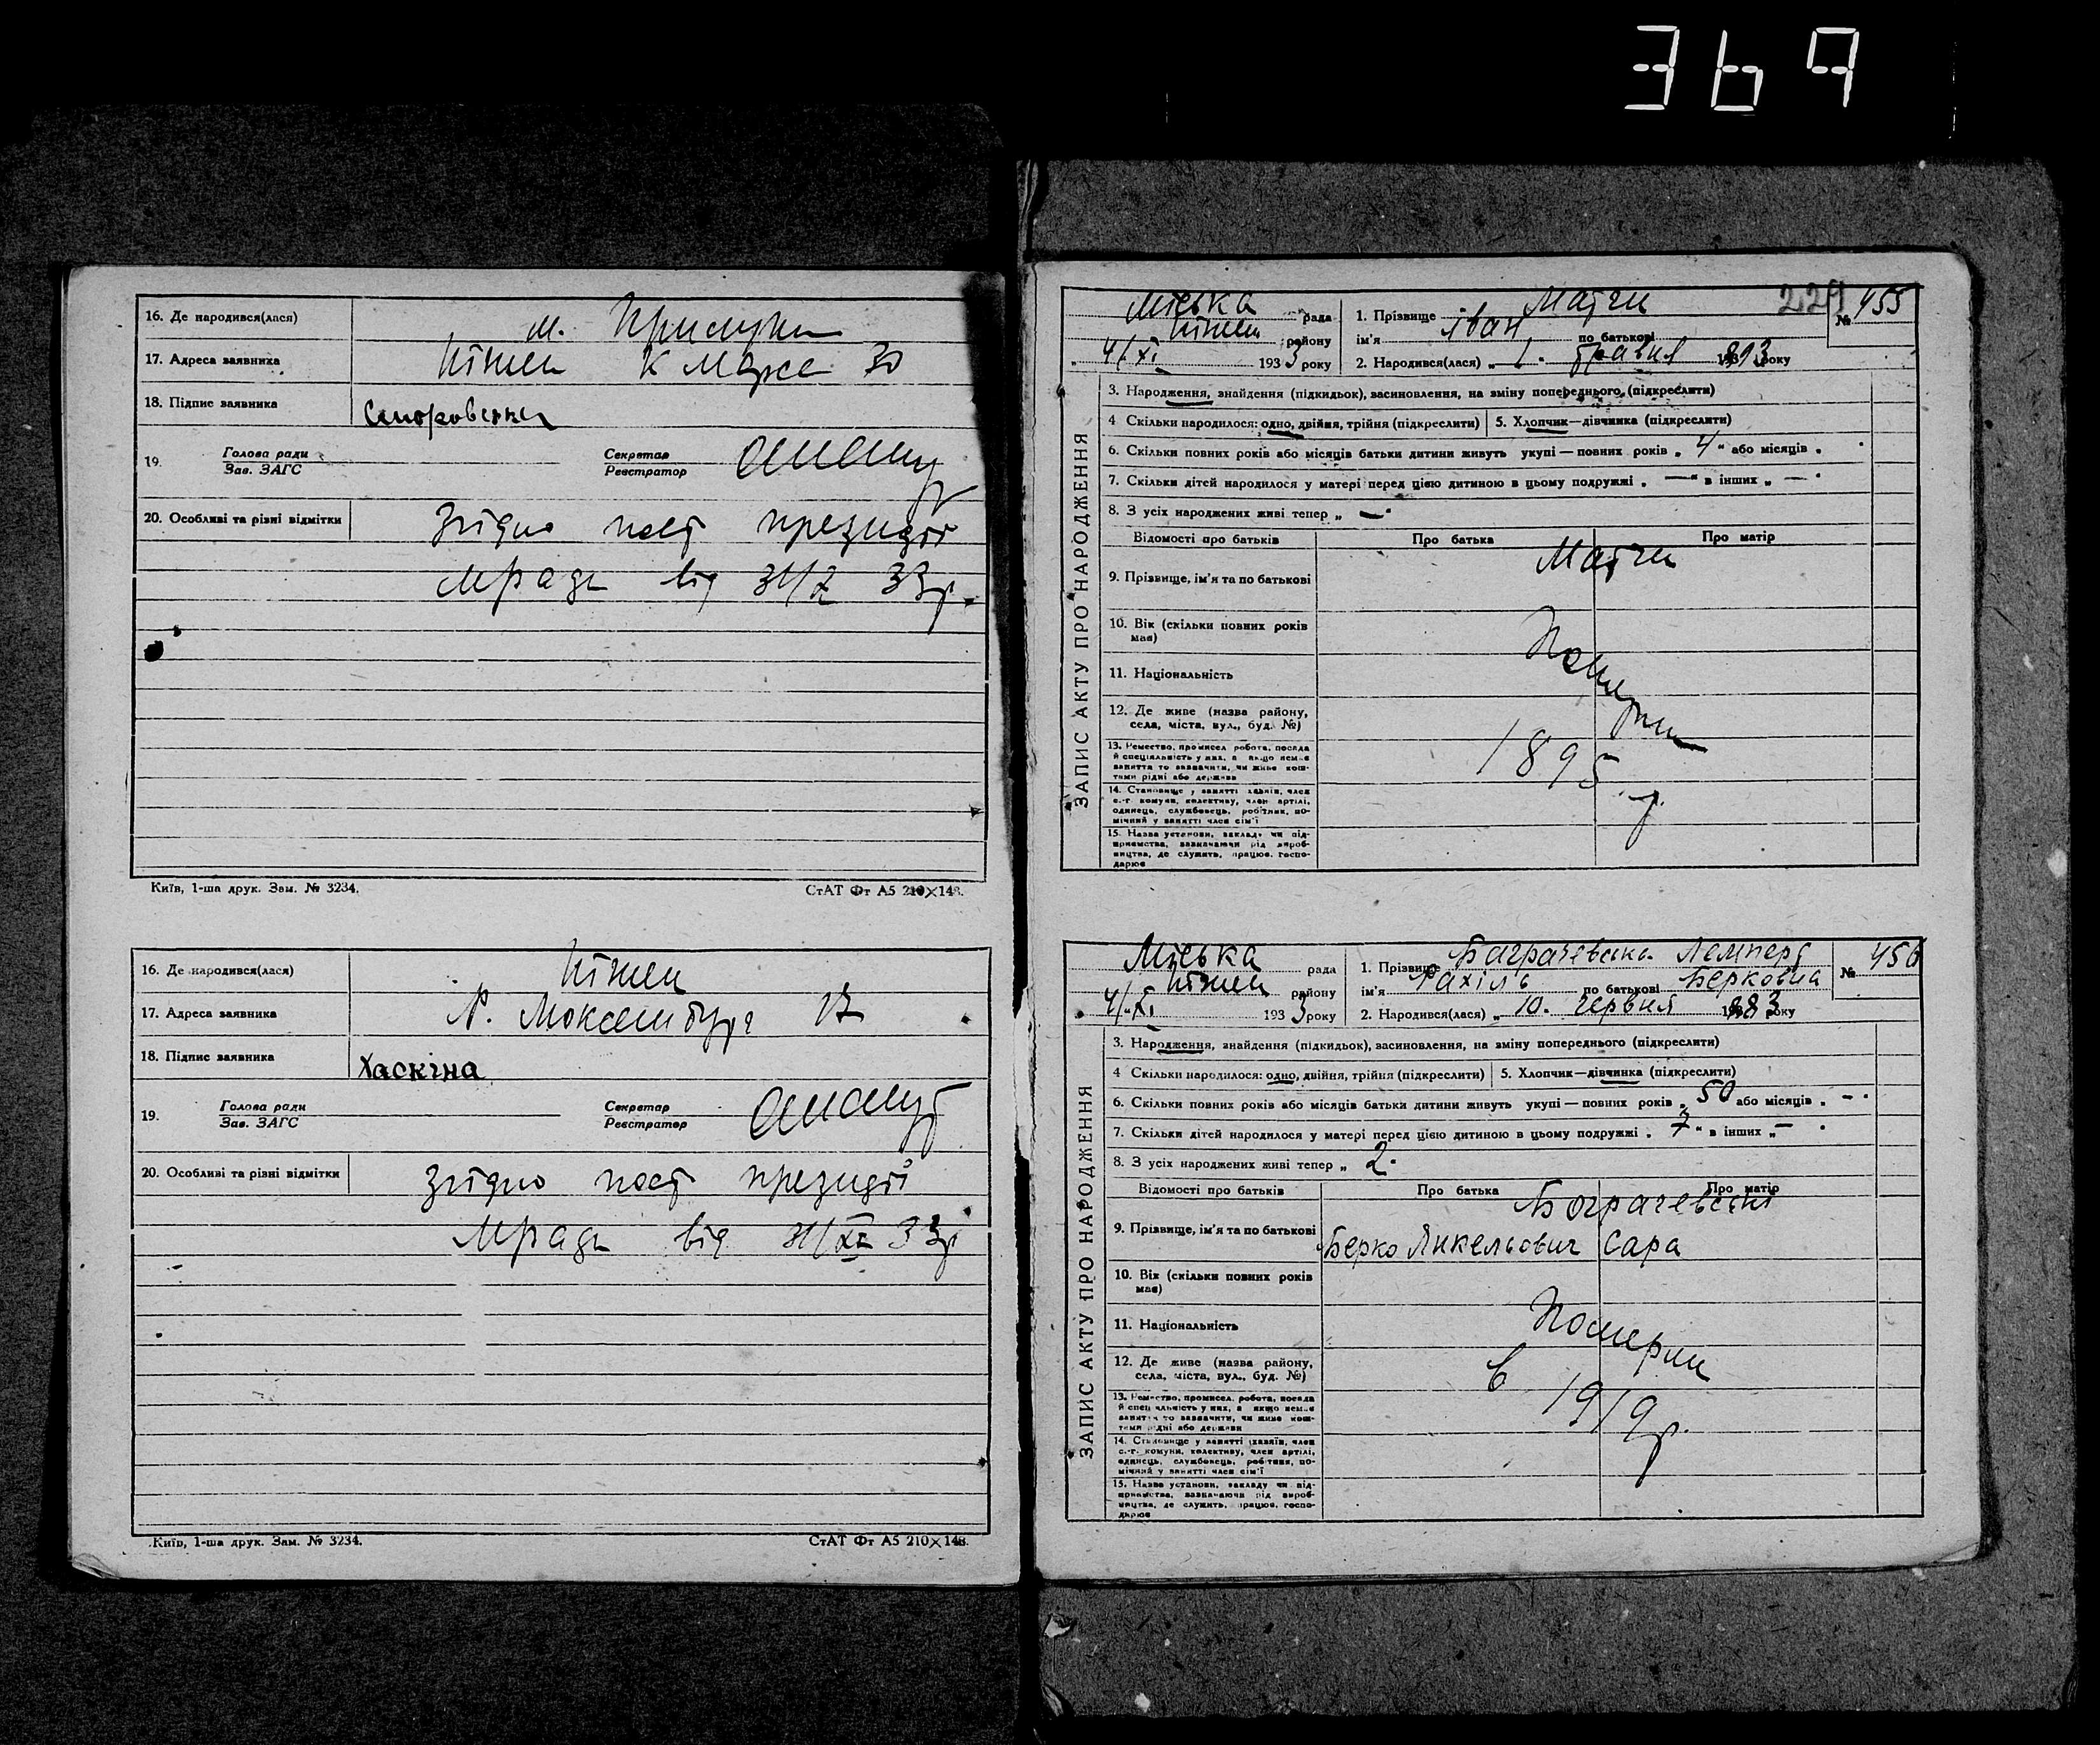 369
16. Де народився(лася) м. Прилуки
17. Адреса заявника Ніжен К Маркса 30
18. Підпис заявника
19. Голова ради Секретар
Зав. ЗАГС Реєстратор
20. Особливі та різні відмітки Згідно пост президії
мради від 31/X 33р.
Київ, 1-ша друк. Зам. № 3234. СтАТ Фт А5 210×148.
16. Де народився(лася) Ніжен
17. Адреса заявника Р. Люксембург 17
18. Підпис заявника Хаскіна
19. Голова ради Секретар
Зав. ЗАГС Реєстратор
20. Особливі та різні відмітки Згідно пост президії
Мради від 31/XI 33р
Київ, 1-ша друк. Зам. № 3234. СтАТ Фт А5 210×148.
229
ЗАПИС АКТУ ПРО НАРОДЖЕННЯ
Міська рада 1. Прізвище № 455
Ніжен району ім'я Іван по батькові
4/XI 1933 року 2. Народився(лася) „ 1. травня 1893 року
3. Народження, знайдення (підкидьок), васиновлення, на зміну попереднього (підкреслити)
4 Скільки народилося: одно, двійня, трійня (підкреслити) 5. Хлопчик—дівчинка (підкреслити)
6. Скільки повних років або місяців батьки дитини живуть укупі — повних років „ 4 " або місяців „
7. Скільки дітей народилося у матері перед цією дитиною в цьому подружжі „ — " в інших „ — "
8. З усіх народжених живі тепер „ — "
Відомості про батьків Про батька Про матір
9. Прізвище, ім'я та по батькові
10. Вік (скільки повних років
має)
Померли
11. Національність
12. Де живе (назва району,
села, міста, вул., буд. №)
1895 р.
13. Ремество, промисел робота, посада
й спеціяльність у них, а якщо немає
заняття то зазначити, чи живе кош-
тами рідні або держави
14. Становище у занятті хазяїн, член
с.-г комуни, колективу, член артілі,
одинець, службовець, робітник, по-
мічний у занятті член сім'ї
15. Назва установи, закладу чи під-
приємства, зазначаючи рід вироб-
ництва, де служить, працює, госпо-
дарює
ЗАПИС АКТУ ПРО НАРОДЖЕННЯ
Міська рада 1. Прізвище Баграчевська Лемперт № 456
Ніжен району ім'я Рахіль по батькові Берковна
4/XI 1933 року 2. Народився(лася) „ 10. червня 1883 року
3. Народження, знайдення (підкидьок), васиновлення, на зміну попереднього (підкреслити)
4 Скільки народилося: одно, двійня, трійня (підкреслити) 5. Хлопчик—дівчинка (підкреслити)
6. Скільки повних років або місяців батьки дитини живуть укупі — повних років „ 50 або місяців „ — "
7. Скільки дітей народилося у матері перед цією дитиною в цьому подружжі „ 7 " в інших „ — "
8. З усіх народжених живі тепер „ 2 "
Відомості про батьків Про батька Про матір
Баграчевські
9. Прізвище, ім'я та по батькові Берко Янкельович Сара
10. Вік (скільки повних років
має)
11. Національність Померли
12. Де живе (назва району,
села, міста, вул., буд. №)
в 1919 р.
13. Ремество, промисел, робота, посада
й спеціяльність у них, а якщо немає
заняття то зазначити, чи живе кош-
тами рідні або держави
14. Становище у занятті хазяїн, член
с.-г. комуни, колективу, член артілі,
одинець, службовець, робітник, по-
мічний у занятті член сім'ї
15. Назва установи, закладу чи під-
приємства, зазначаючи рід вироб-
ництва, де служить, працює, госпо-
дарює